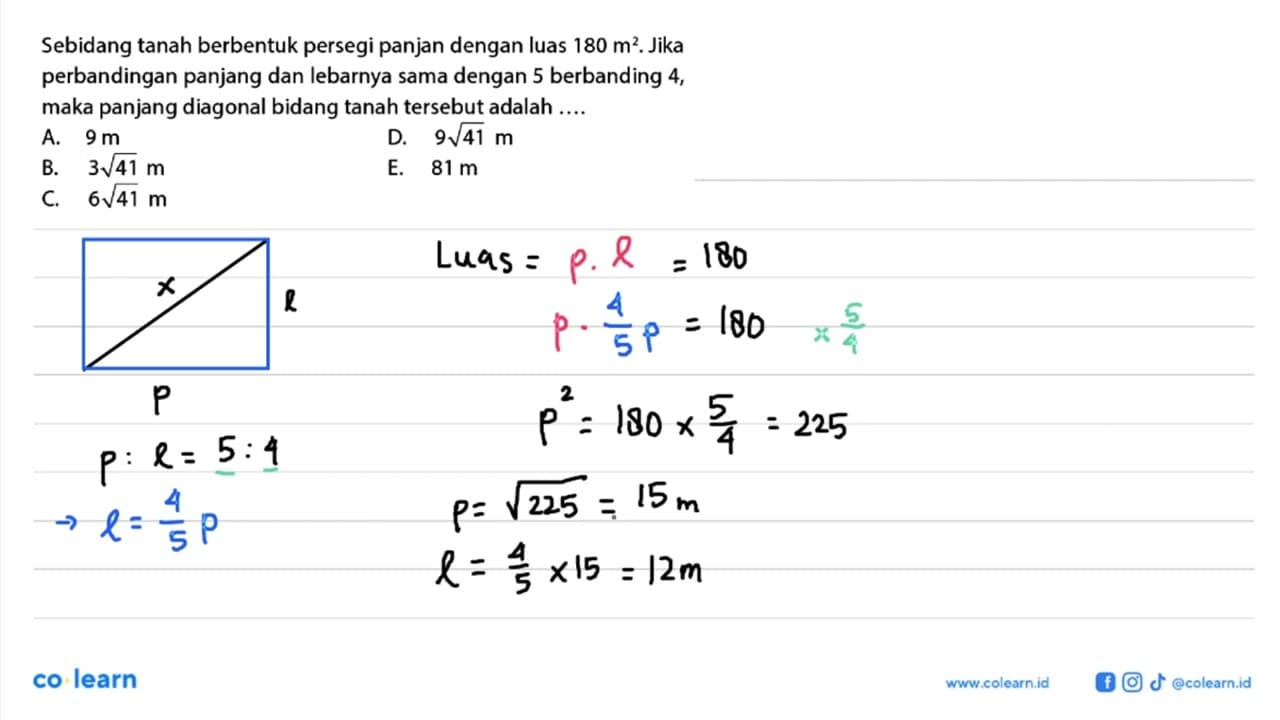 Sebidang tanah berbentuk persegi panjan dengan luas 180 m². Jika
perbandingan panjang dan lebarnya sama dengan 5 berbanding 4,
maka panjang diagonal bidang tanah tersebut adalah ....
A. 9 m
B. 3√41 m
C. 6√41 m
D. 9√41 m
E. 81 m
x
l
p
p : l = 5 : 4
→ l = 4/5 p
Luas = p . l = 180
p . 4/5 p = 180 × 5/4
p² = 180 × 5/4 = 225
p = √225 = 15 m
l = 4/5 × 15 = 12 m
co learn
www.colearn.id
@colearn.id